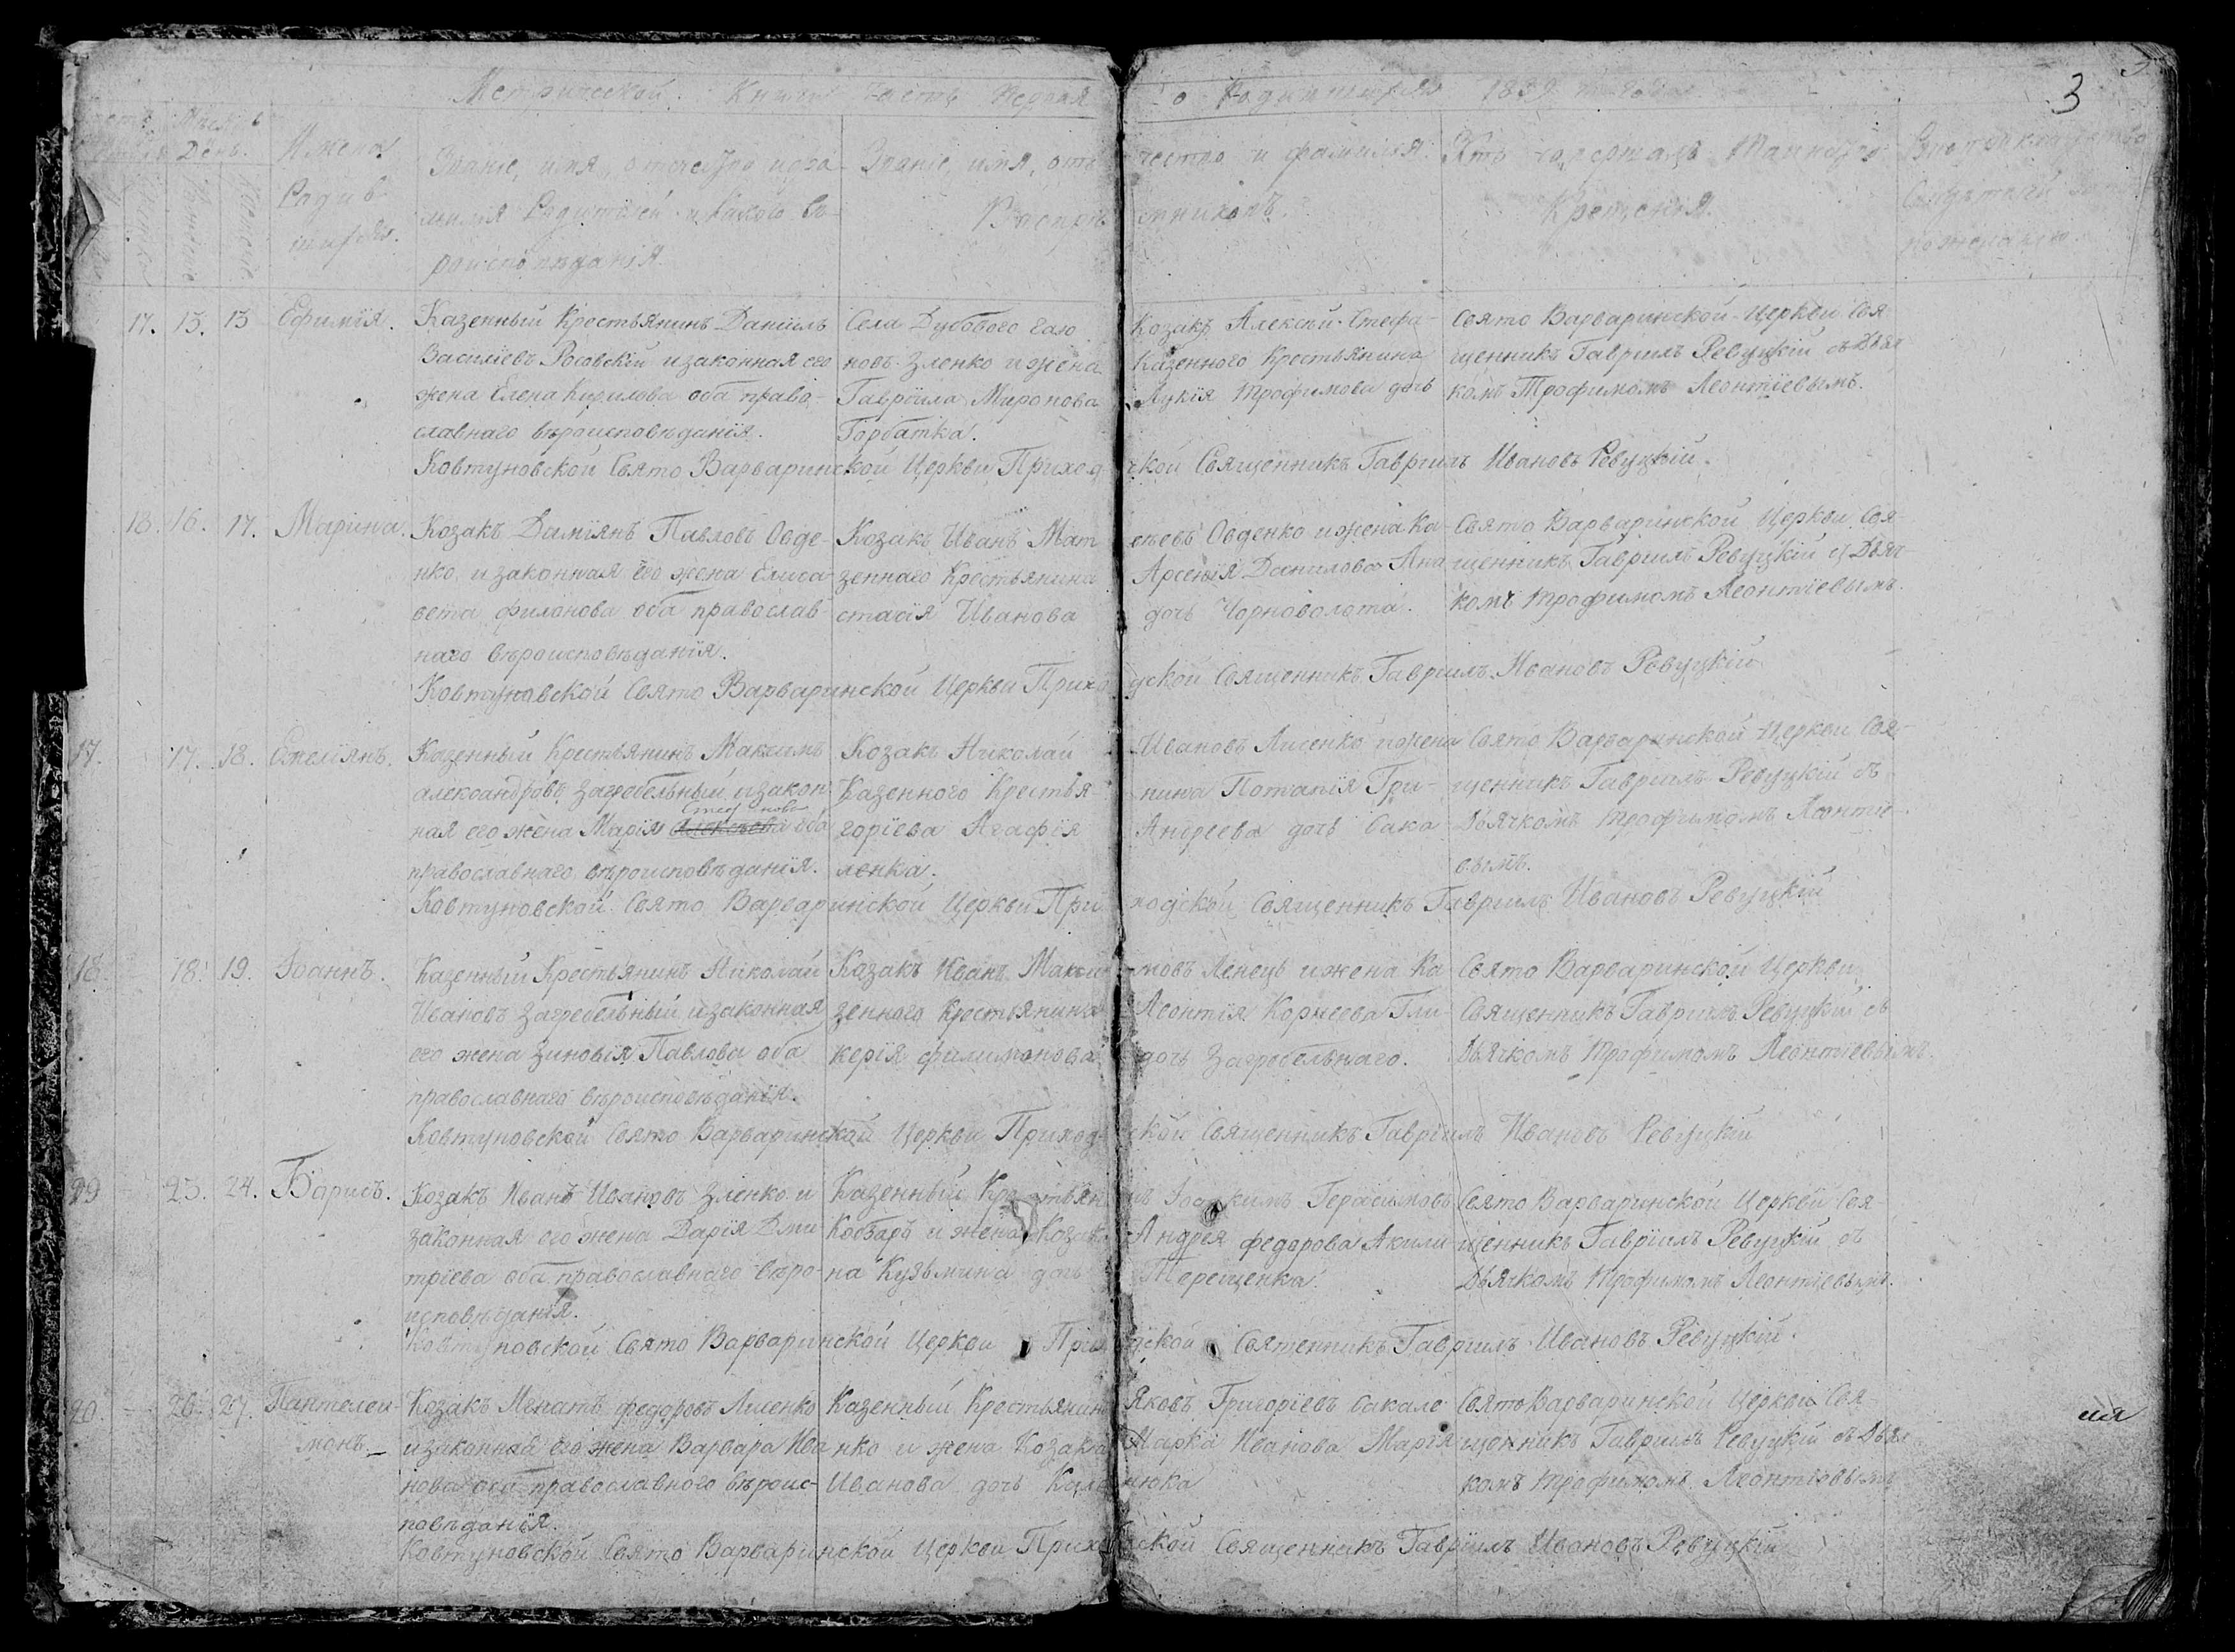 3
Метрической Книги часть Первая о Родившихся 1839 года
Мѣсяцъ
День
Рожденіе
Крещеніе
Имена
Родив
шихся.
Званіе, имя, отчество и фа-
милія Родителей и какого вѣ-
роисповѣданія.
Званіе, имя, отчество и фамилія
Воспріемниковъ.
Кто совершалъ Таинство
Крещенія.
Рукоприкладство
Свидѣтелей
по желанію.
17. 13. 13 Ефимія.
Казенный Крестьянинъ Даніилъ
Василіевъ Росовскій и законная его
жена Елена Кирилова оба право-
славнаго вѣроисповѣданія.
Села Дубового Гаю Козакъ Алексѣй Стефа-
новъ Зленко и жена Казенного Крестьянина
Гавріила Миронова Лукія Трофимова дочь
Горбатка.
Свято Варваринской Церкви Свя-
щенникъ Гавріилъ Ревуцкій съ Дьяч
комъ Трофимомъ Леонтіевымъ.
Ковтуновской Свято Варваринской Церкви Приходской Священникъ Гавріилъ Ивановъ Ревуцкій.
18. 16. 17. Марина.
Козакъ Даміянъ Павловъ Овде-
нко и законная его жена Елиса-
вета Филонова оба православ-
наго вѣроисповѣданія.
Козакъ Иванъ Матѳеевъ Овденко и жена Ка-
зенного Крестьянина Арсенія Данилова Ана
стасія Иванова дочь Чорноволота.
Свято Варваринской Церкви Свя-
щенникъ Гавріилъ Ревуцкій съ Дьяч
комъ Трофимомъ Леонтіевымъ.
Ковтуновской Свято Варваринской Церкви Приходской Священникъ Гавріилъ Ивановъ Ревуцкій
17. 17. 18. Емеліянъ.
Казенный Крестьянинъ Максимъ
Александровъ Загребельный и закон
ная его жена Марія Алексѣева оба
православнаго вѣроисповѣданія.
Козакъ Николай Ивановъ Лисенко и жена
Казенного Крестьянина Потапія Гри-
горіева Агафія Андреева дочь Сака
ленка.
Свято Варваринской Церкви Свя-
щенникъ Гавріилъ Ревуцкій съ
Дьячкомъ Трофимомъ Леонтіе-
вымъ.
Ковтуновской Свято Варваринской Церкви Приходской Священникъ Гавріилъ Ивановъ Ревуцкій
18 18. 19. Іоаннъ.
Казенный Крестьянинъ Николай
Ивановъ Загребельный и законная
его жена Зиновія Павлова оба
православнаго вѣроисповѣданія.
Козакъ Иванъ Максимовъ Ленець и жена Ка
зенного Крестьянина Леонтія Корнеева Гли-
керія Филимонова дочь Загребельнаго.
Свято Варваринской Церкви
Священникъ Гавріилъ Ревуцкій съ
Дьячкомъ Трофимомъ Леонтіевымъ.
Ковтуновской Свято Варваринской Церкви Приходской Священникъ Гавріилъ Ивановъ Ревуцкій
19 23. 24. Борисъ.
Козакъ Иванъ Ивановъ Зленко и
законная его жена Дарія Дми
тріева оба православнаго вѣро-
исповѣданія.
Казенный Крестьянинъ Іоакимъ Герасимовъ
Кобзаръ и жена Козака Андрея Федорова Акили
на Кузьмина дочь Терещенка.
Свято Варваринской Церкви Свя
щенникъ Гавріилъ Ревуцкій съ
Дьячкомъ Трофимомъ Леонтіевымъ.
Ковтуновской Свято Варваринской Церкви Приходской Священникъ Гавріилъ Ивановъ Ревуцкій.
20. 26. 27. Пантелеи-
монъ
Козакъ Игнатъ Федоровъ Лисенко
и законная его жена Варвара Ива
нова оба православного вѣроис-
повѣданія.
Казенный Крестьянинъ Яковъ Григоріевъ Сакале
нко и жена Козака Марка Иванова Марія
Иванова дочь
Свято Варваринской Церкви Свя
щенникъ Гавріилъ Ревуцкій съ Дьяч
комъ Трофимомъ Леонтіевымъ
Ковтуновской Свято Варваринской Церкви Приходской Священникъ Гавріилъ Ивановъ Ревуцкій